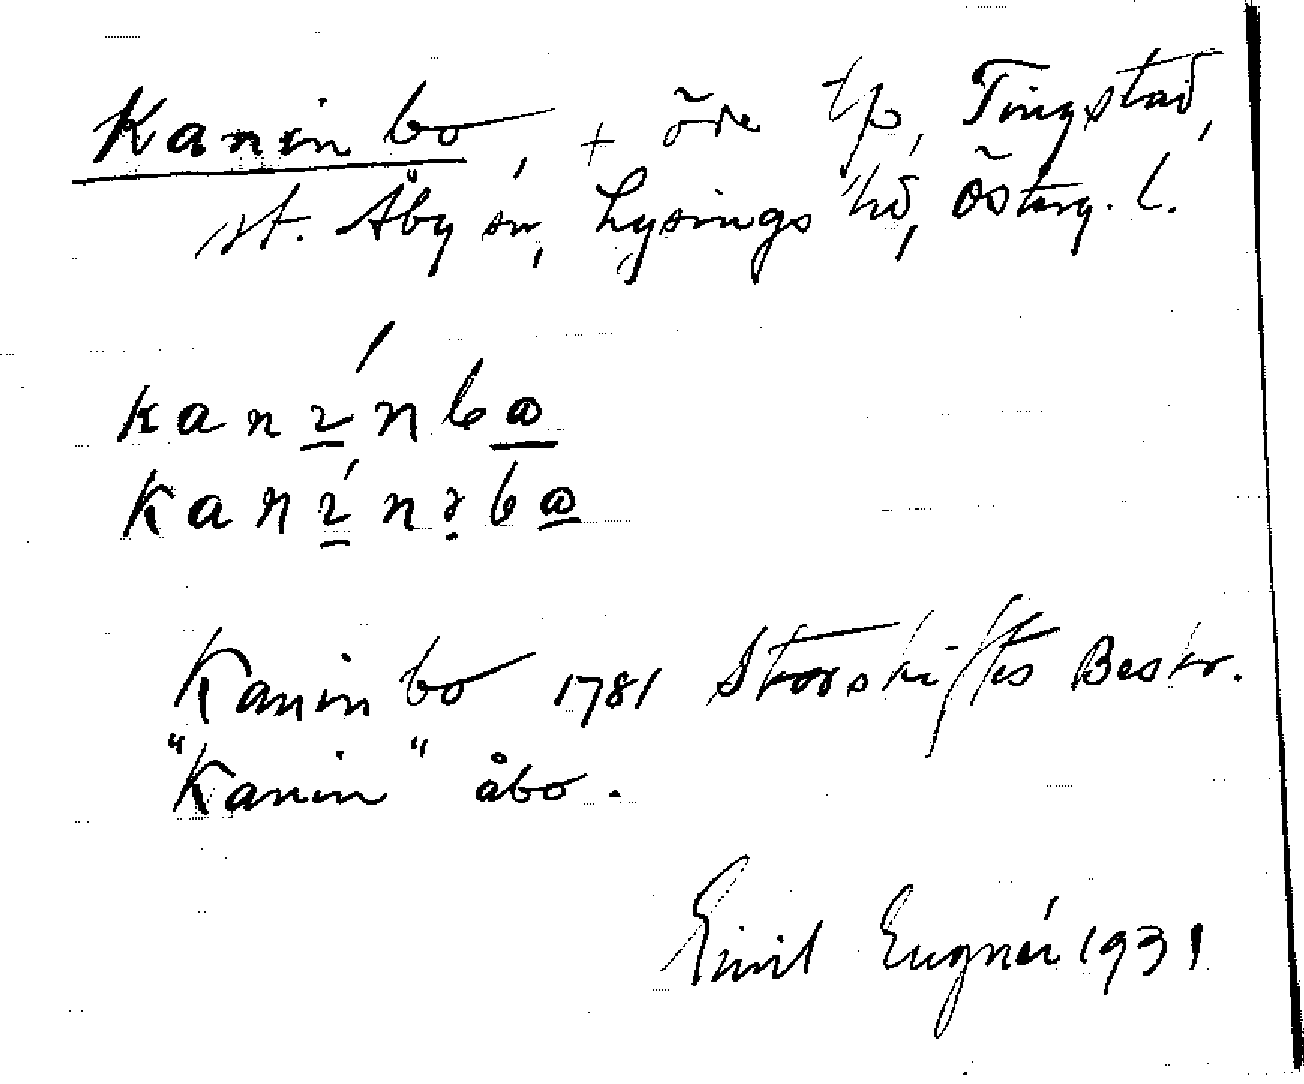 Kaninbo, + öde tp, Tingstad,
st. Åby sn, Lysings hd, Österg. l.
kanínbω
kanínəbω
Kaninbo 1781 Storskiftes Beskr.
"Kanin" åbo.
Emil Eugnér 1931